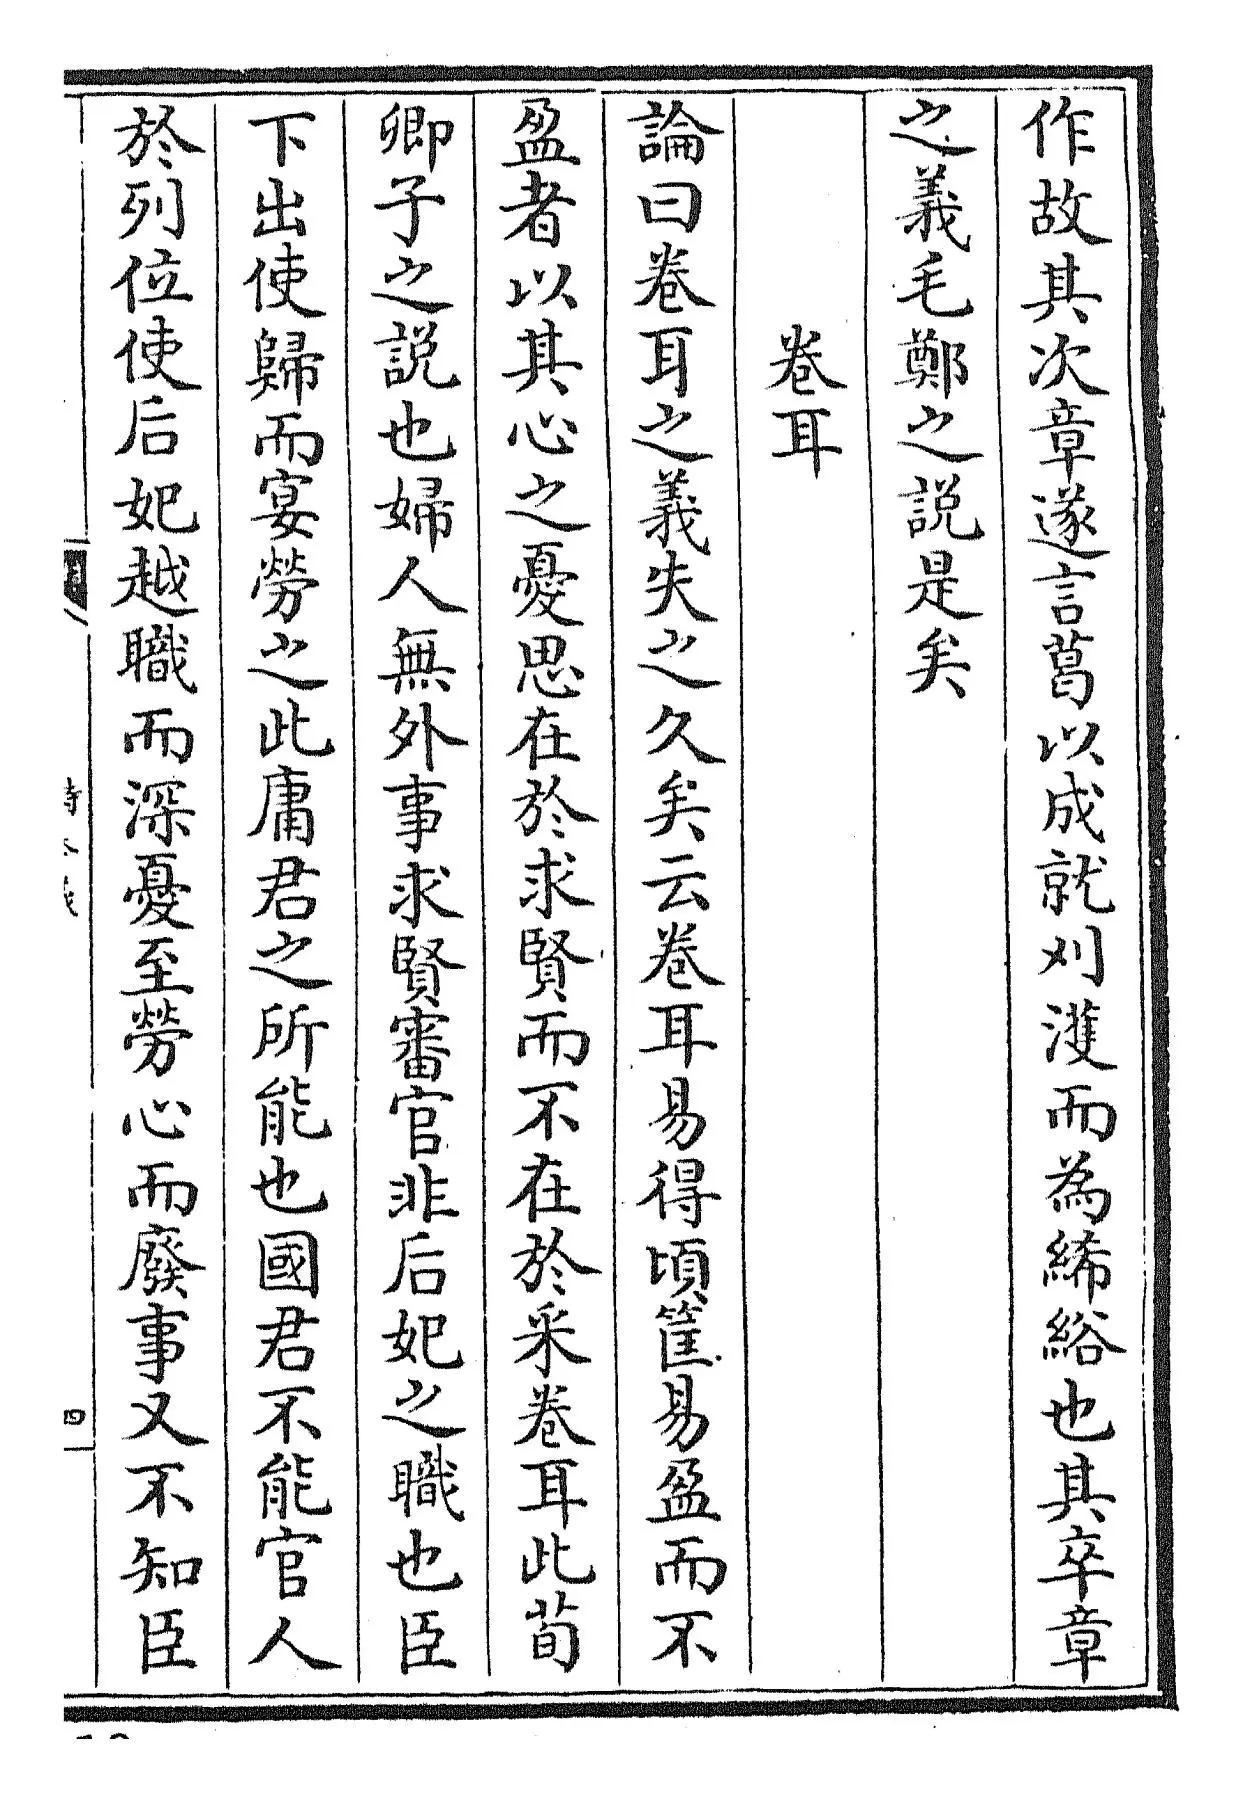 作故其次章遂言葛以成就刈濩而為絺綌也其卒章
之義毛鄭之説是矣
卷耳
論曰卷耳之義失之久矣云卷耳易得頃筐易盈而不
盈者以其心之憂思在於求賢而不在於采卷耳此荀
卿子之説也婦人無外事求賢審官非后妃之職也臣
下出使歸而宴勞之此庸君之所能也國君不能官人
於列位使后妃越職而深憂至勞心而廢事又不知臣
四